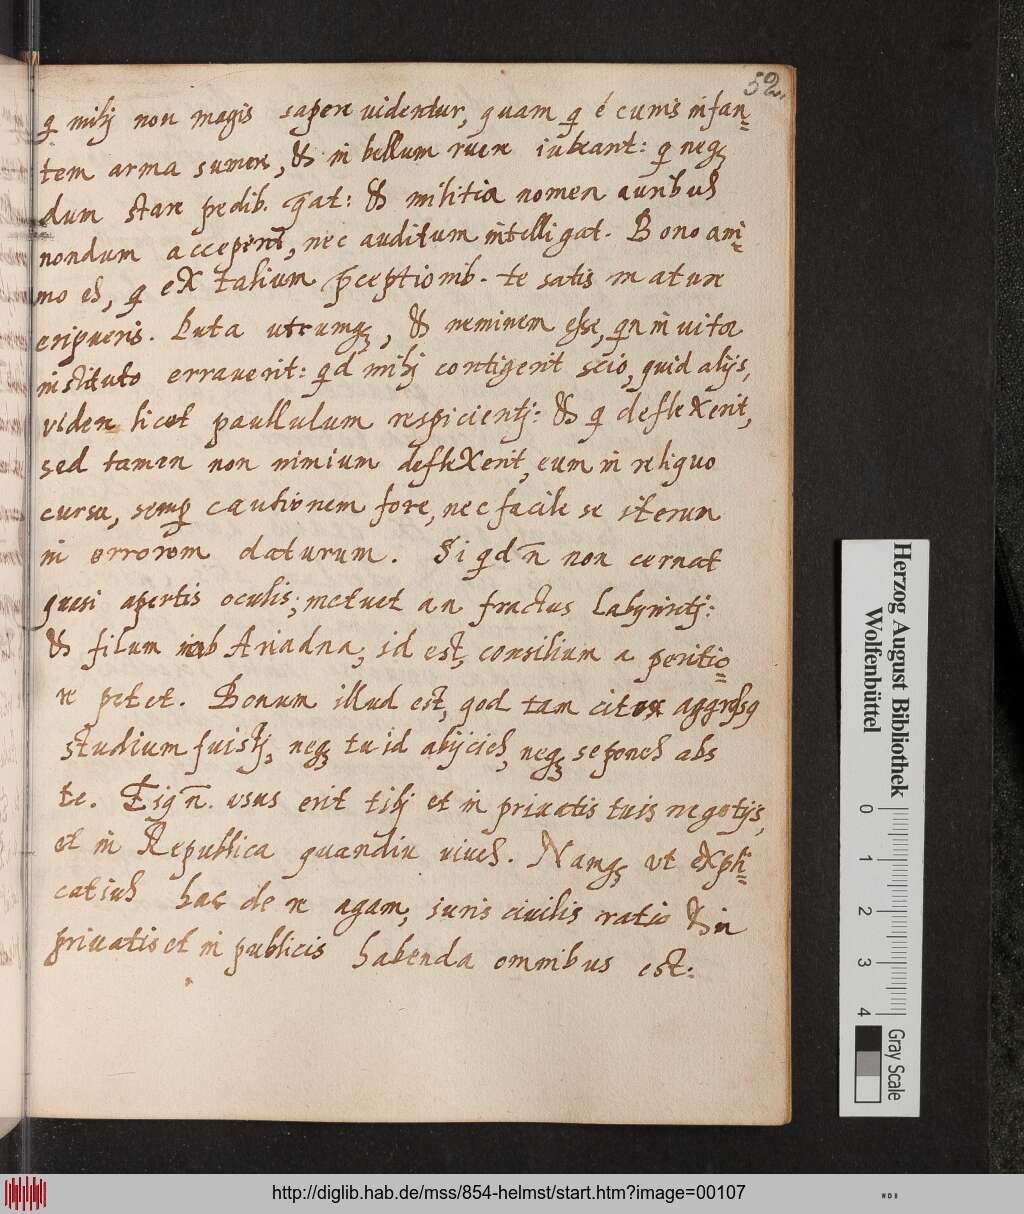 52.
q̨ mihj non magis sapere videntur, quam q̨ é cunis infan=
tem arma sumere, & in bellum ruere iubeant: q̨ neq̨
dum stare pedib. q̄at: & militia nomen auribus
nondum acceperit, nec auditum intelligat. Bono ani=
mo es, q̨ ex talium p̄ceptionib. te satis mature
eripueris. Puta utcumq̨, & neminem esse, qn in vita
instituto errauerit: q̨d mihj contigerit scio, quid alijs,
videre licet paullulum respicientj: & q̨ deflexerit,
sed tamen non nimium deflexerit, eum in reliquo
cursu, semp cautionem fore, nec facile se iterum
in errorem daturum. Si q̨d n̄ non cernat
quasi apertis oculis; metuet an fractus Labyrintj:
& filum ab Ariadna, id est, consilium a peritio=
re petet. Bonum illud est, qod tam citore aggressq
studium fuistj, neq̨ tu id abijcies, neq̨ sepones abs
te. Eiq n̄. usus erit tibj et in priuatis tuis negotijs,
et in Republica quandiu viues. Namq̨ ut expli=
catius hac de re agam, iuris ciuilis ratio & in
priuatis et in publicis habenda omnibus est:
Herzog August Bibliothek
Wolfenbüttel
0 1 2 3 4
Gray Scale
http://diglib.hab.de/mss/854-helmst/start.htm?image=00107